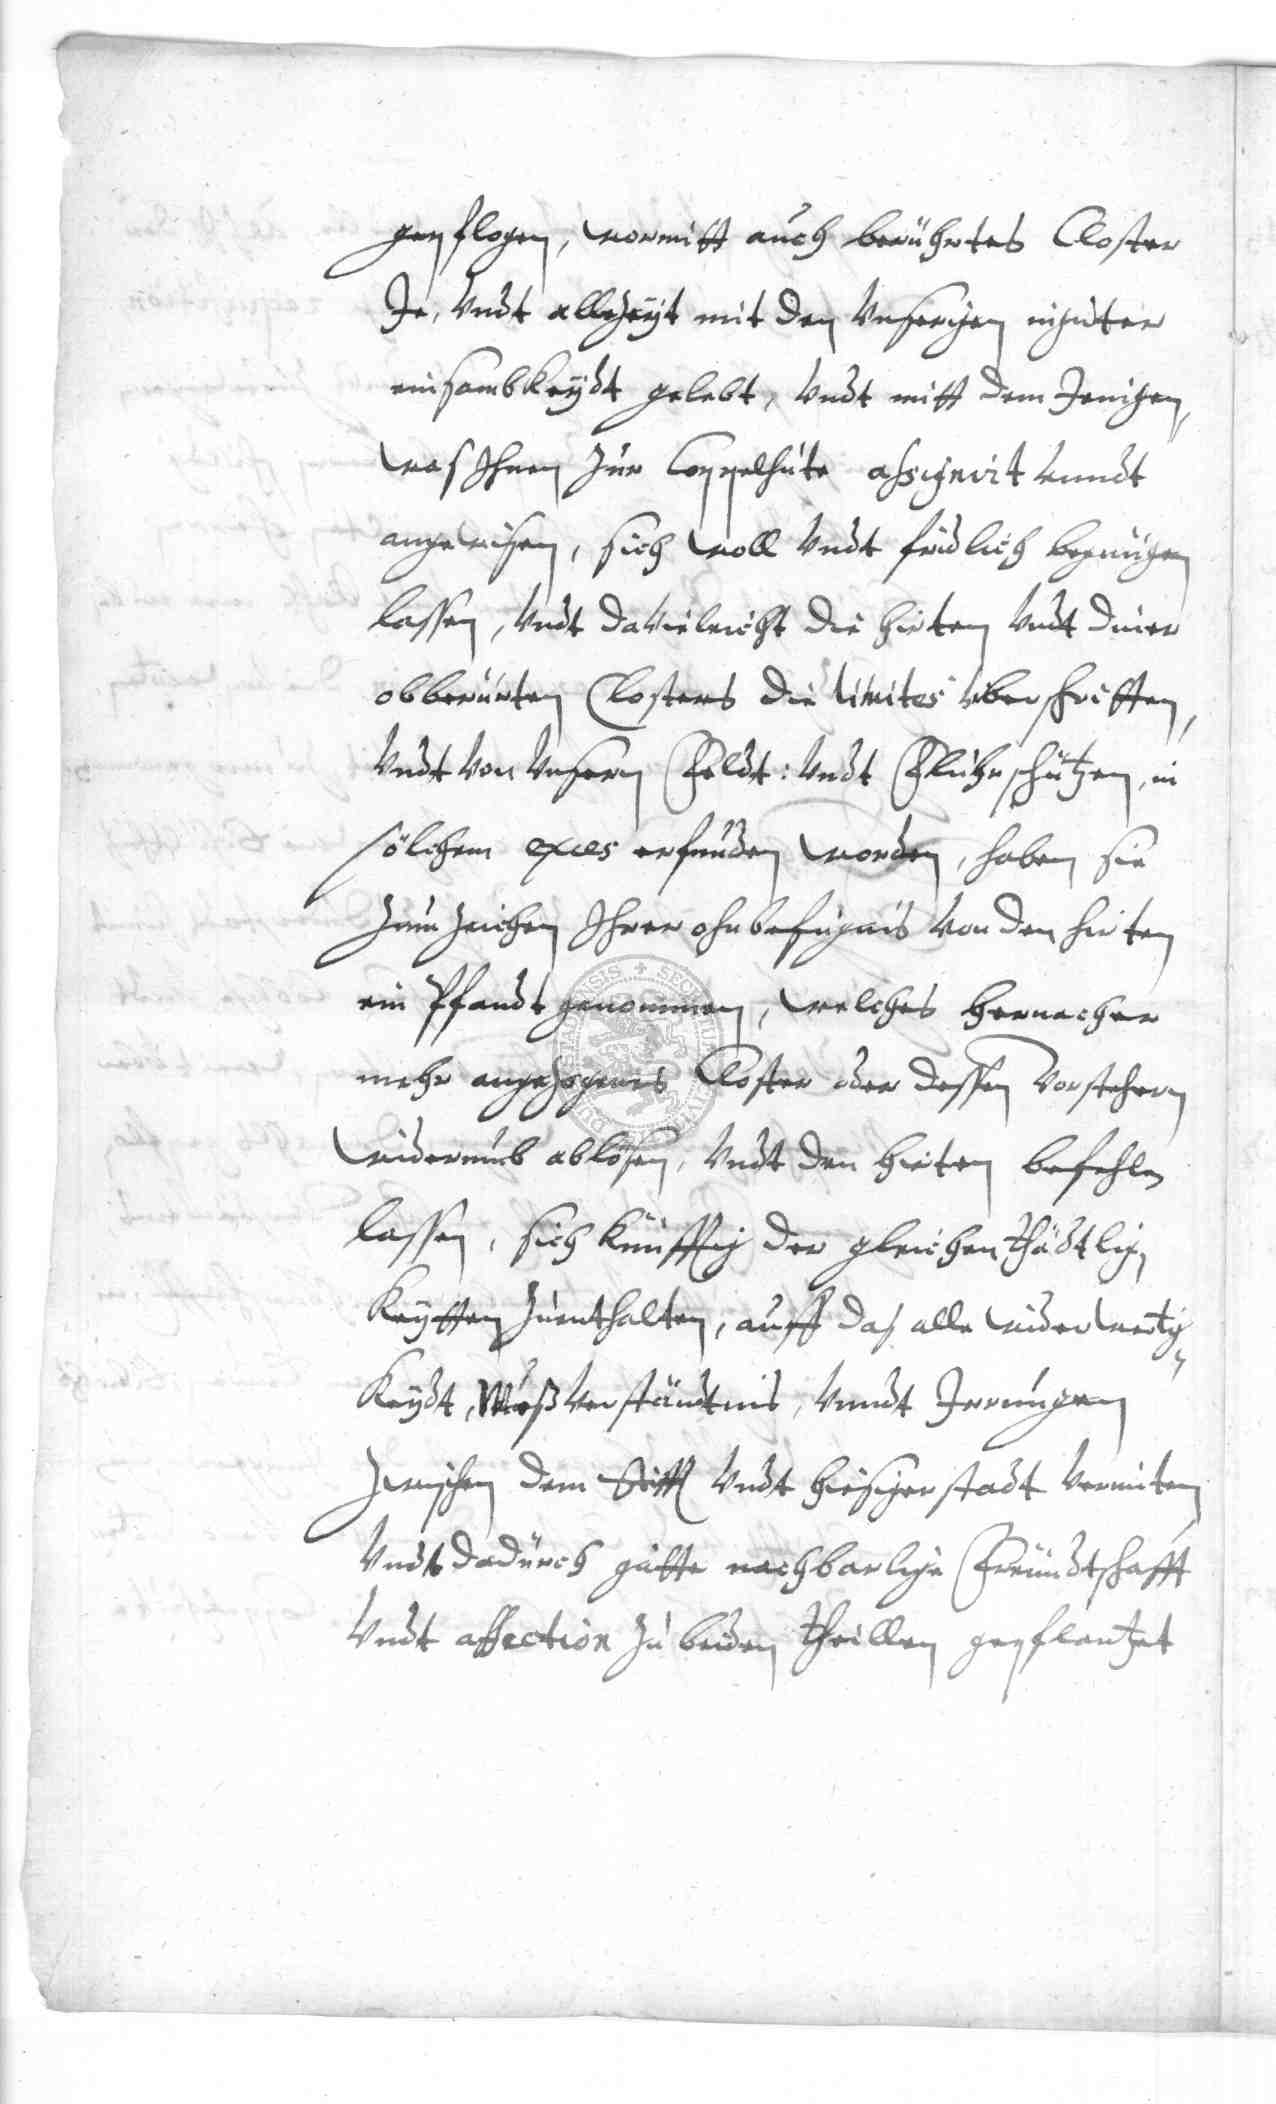 gepflogen, wormitt auch berührtes Closter
Je, Undt allezeyt mit den Unserigen in guter
einsambkeydt gelebt, Undt mitt dem Jenigen,
was Ihnen zur Coppelhute assignirt Unndt
angewisen, sich woll Undt fridlich begnugen
lassen, Undt da Vieleicht die hirten Undt diner
obberurten Closters die limites uberschritten,
Undt Von Unsern Feldt: Undt Fluhrschützen, in
sölchem exces erfunden worden, haben sie
zum zeichen Ihrer ohnbefugnis Von den hirten
ein Pfandt genommen, welches hernacher
mehr angezogenes Closter oder dessen Vorstehern
widerumb ablösen, Undt den hirten befehlen
lassen, sich künfftig der gleichen thädtlig
keytten zuenthalten, auff das alle widerwertig
keydt, Mißverständtnis, Unndt Irrungen
zwischen dem Stifft Undt hiesiger stadt Vermiten
Undt dadurch gutte nachbarlige Freündtschafft
Undt affection zu beiden theillen gepflantzet
SIGILLUM SECRETUM CIVITATIS DUDERSTADENSIS